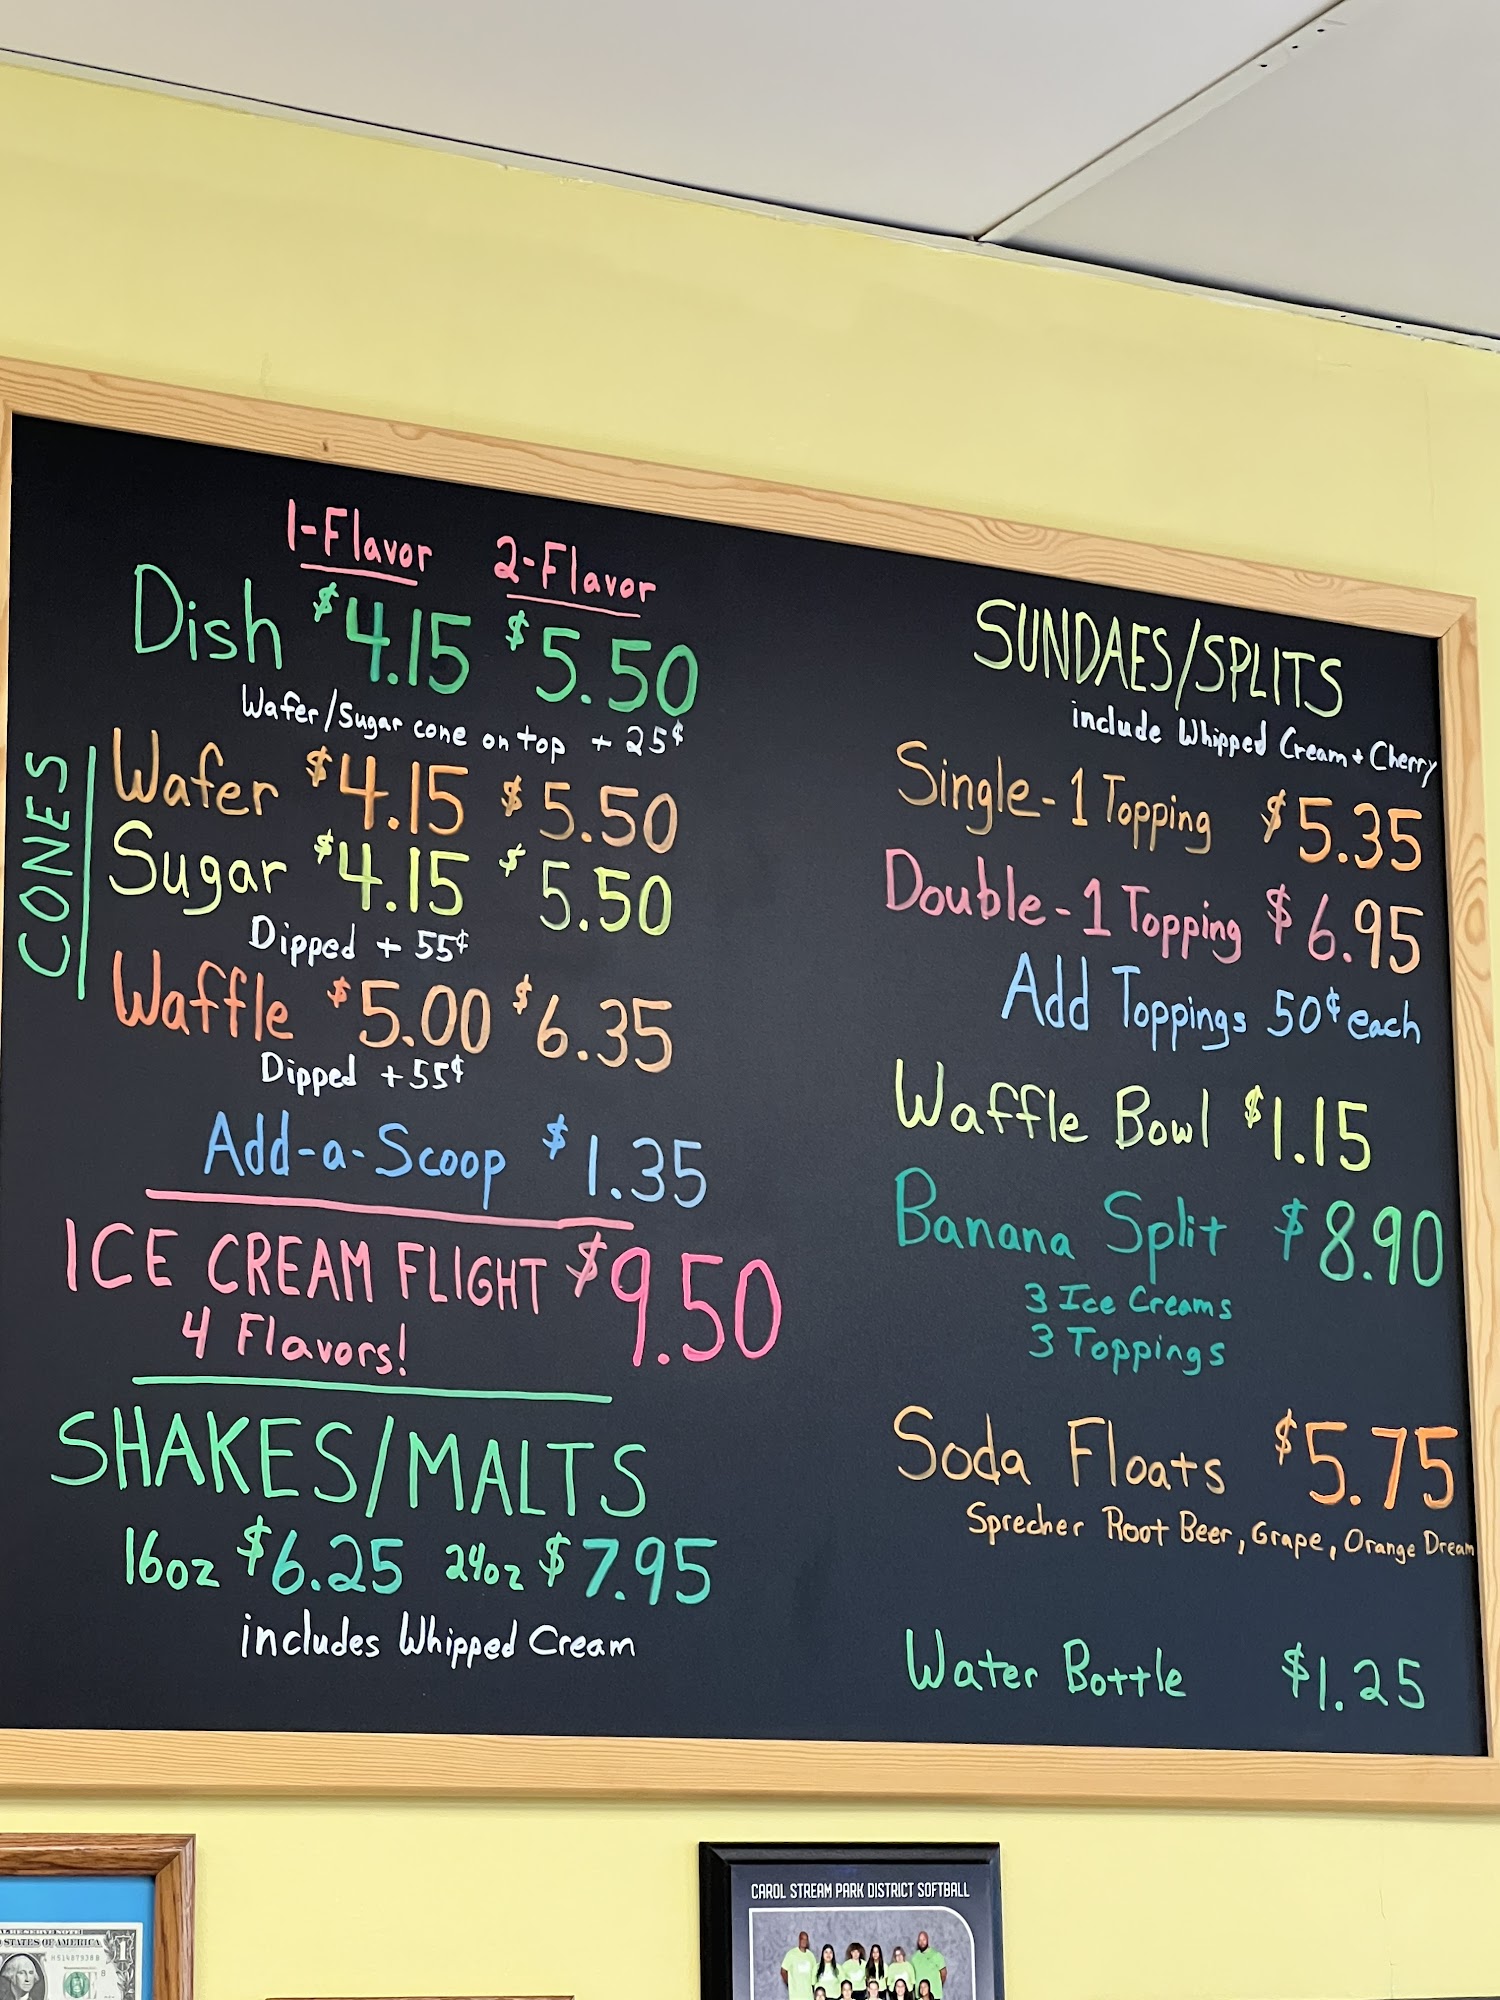 1-Flavor 2-Flavor
Dish $4.15 $5.50
Wafer/Sugar cone on top + 25¢
CONES
Wafer $4.15 $5.50
Sugar $4.15 $5.50
Dipped + 55¢
Waffle $5.00 $6.35
Dipped +55¢
Add-a-Scoop $1.35
ICE CREAM FLIGHT $9.50
4 Flavors!
SHAKES/MALTS
16oz $6.25 24oz $7.95
includes Whipped Cream
SUNDAES/SPLITS
include Whipped Cream + Cherry
Single-1 Topping $5.35
Double-1 Topping $6.95
Add Toppings 50¢ each
Waffle Bowl $1.15
Banana Split $8.90
3 Ice Creams
3 Toppings
Soda Floats $5.75
Sprecher Root Beer, Grape, Orange Dream
Water Bottle $1.25
CAROL STREAM PARK DISTRICT SOFTBALL
STATES OF AMERICA
1